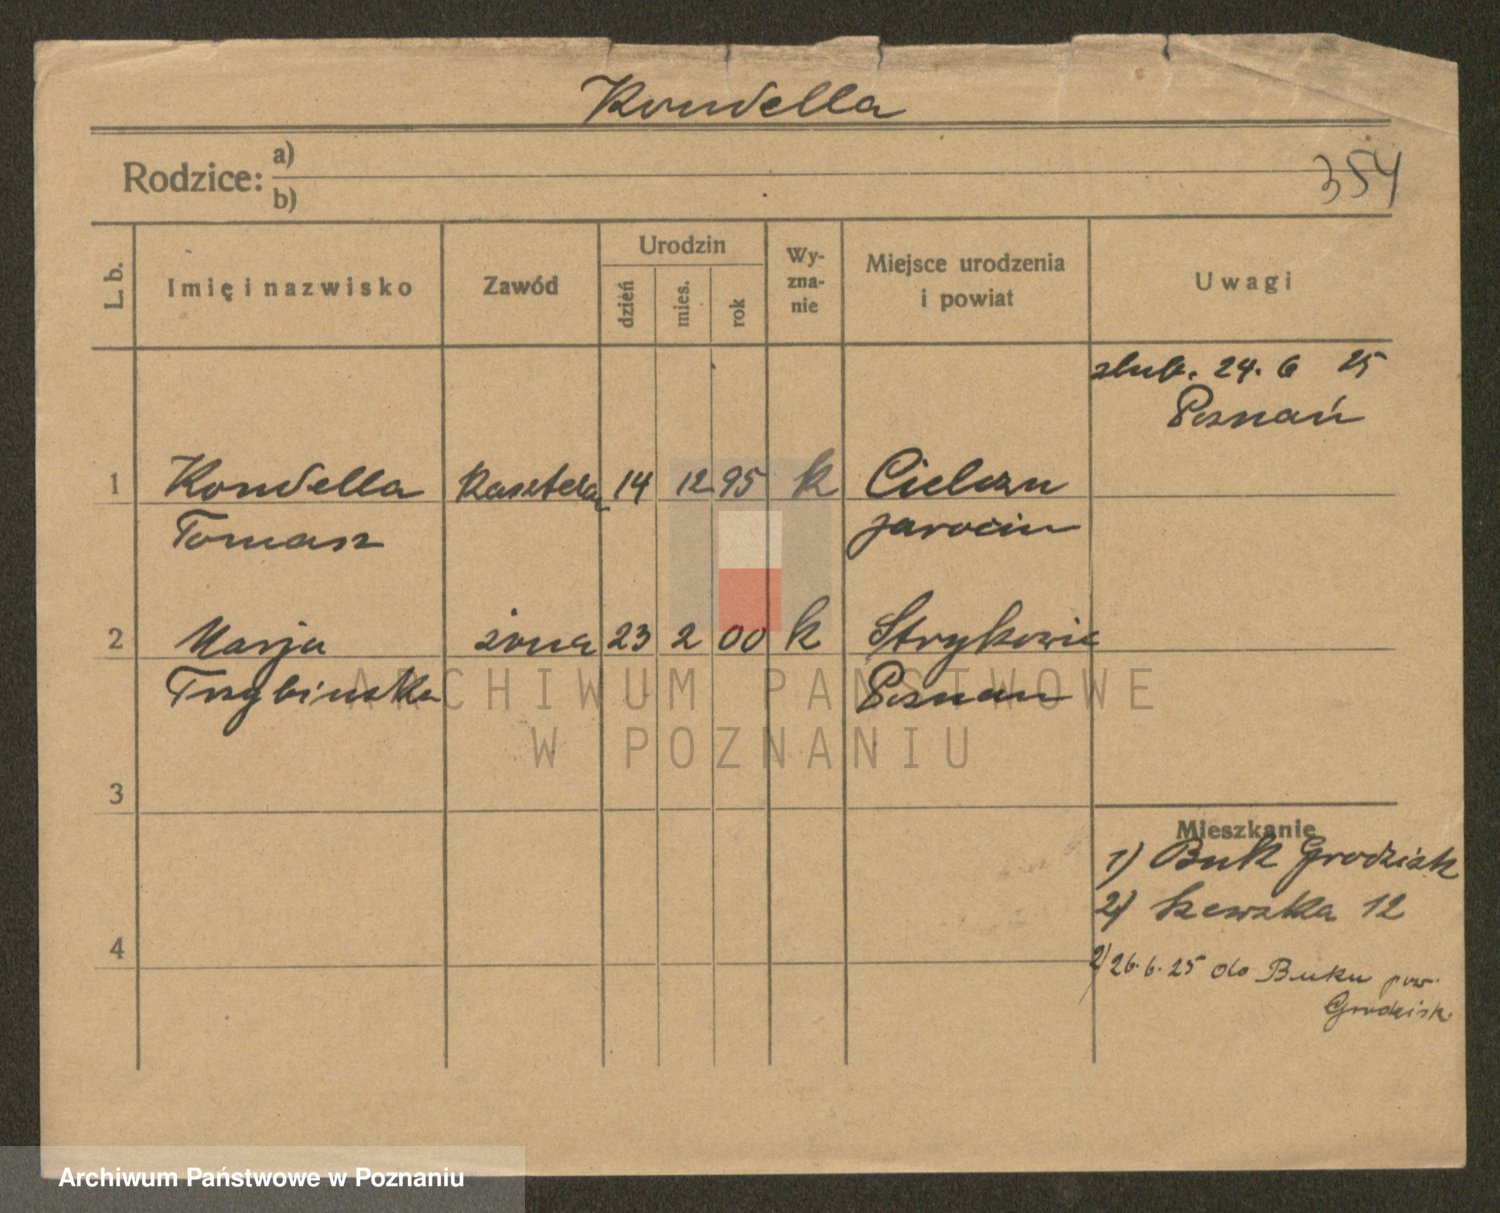 Kondella
Rodzice: a)
b)
354
L. b.
Imię i nazwisko
Zawód
Urodzin
dzień
mies.
rok
Wy-
zna-
nie
Miejsce urodzenia
i powiat
Uwagi
ślub. 24. 6 25
Poznań
1 Kondella 14 12 95 k
Tomasz Jarocin
2 Marja żona 23 2 00 k Strykowie
Trzybinska Poznan
ARCHIWUM PAŃSTWOWE
W POZNANIU
3
Mieszkanie
1) Buk Grodzisk
2) Szewska 12
4
2) 26.6.25 do Buku pow.
Grodzisk.
Archiwum Państwowe w Poznaniu